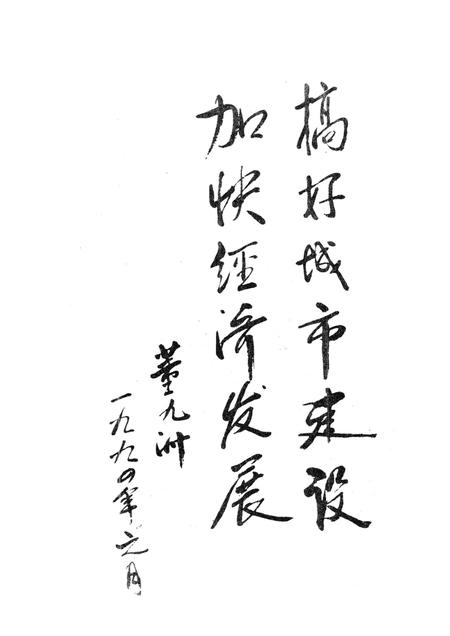 搞好城市建设
加快经济发展
董九洲
一九九四年六月